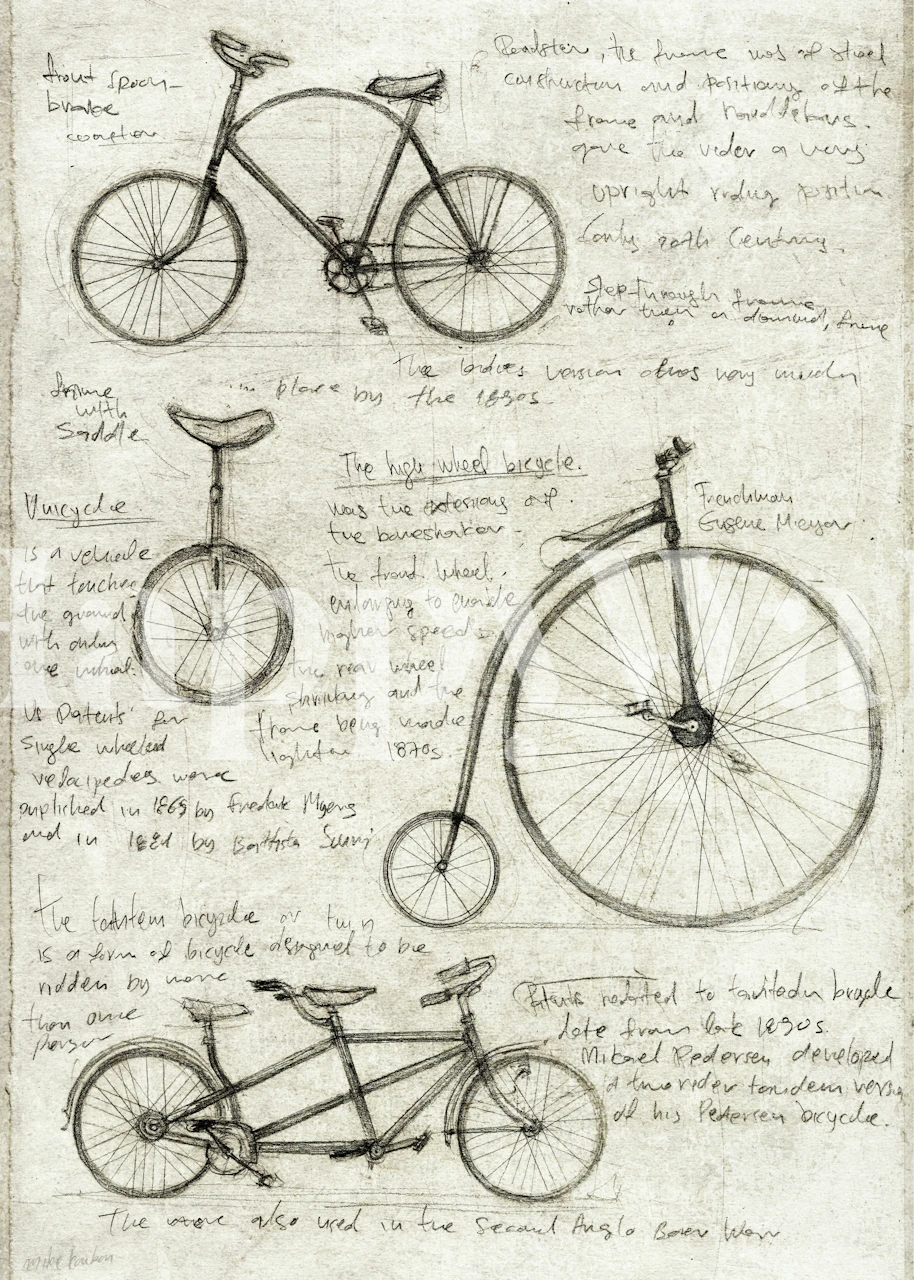 front spoon
brake
Roadster, the frame was of steel
construction and positions of the
frame and handlebars.
gave the rider a very
upright riding position
Early 20th Century.
Step-through frame
rather then a diamond, frame
The ladies version was very much
in place by the 1890s
frame
with
Saddle
Unicycle
is a vehicle
that touches
the ground
with only
one wheel.
US Patents for
Single wheeled
velocipedes were
published in 1869 by Frederick Myers
and in 1881 by Battista Scuri
The high wheel bicycle.
was the extensions of
the boneshaker
the front wheel
enlarging to enable
higher speeds
the rear wheel
shrinking and the
frame being made
lighter 1870s.
Frenchman
Eugene Meyer
The tandem bicycle or twin
is a form of bicycle designed to be
ridden by more
than one
person
Patents related to tandem bicycle
date from late 1890s.
Mikael Pedersen developed
a two rider tandem version
of his Pedersen bicycle.
The were also used in the Second Anglo Boer War